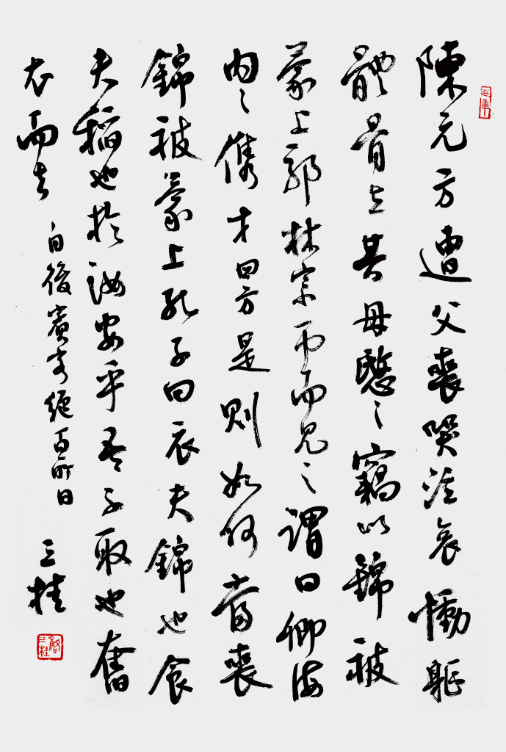 陳元方遭父喪哭泣哀慟躯
體骨立其母愍之竊以錦被
蒙上郭林宗弔而見之謂曰卿海
内之儁才四方是則如何當喪
錦被蒙上孔子曰衣夫錦也食
夫稻也於汝安乎吾不取也奮
衣而去 自後賓客絶百所日
三桂